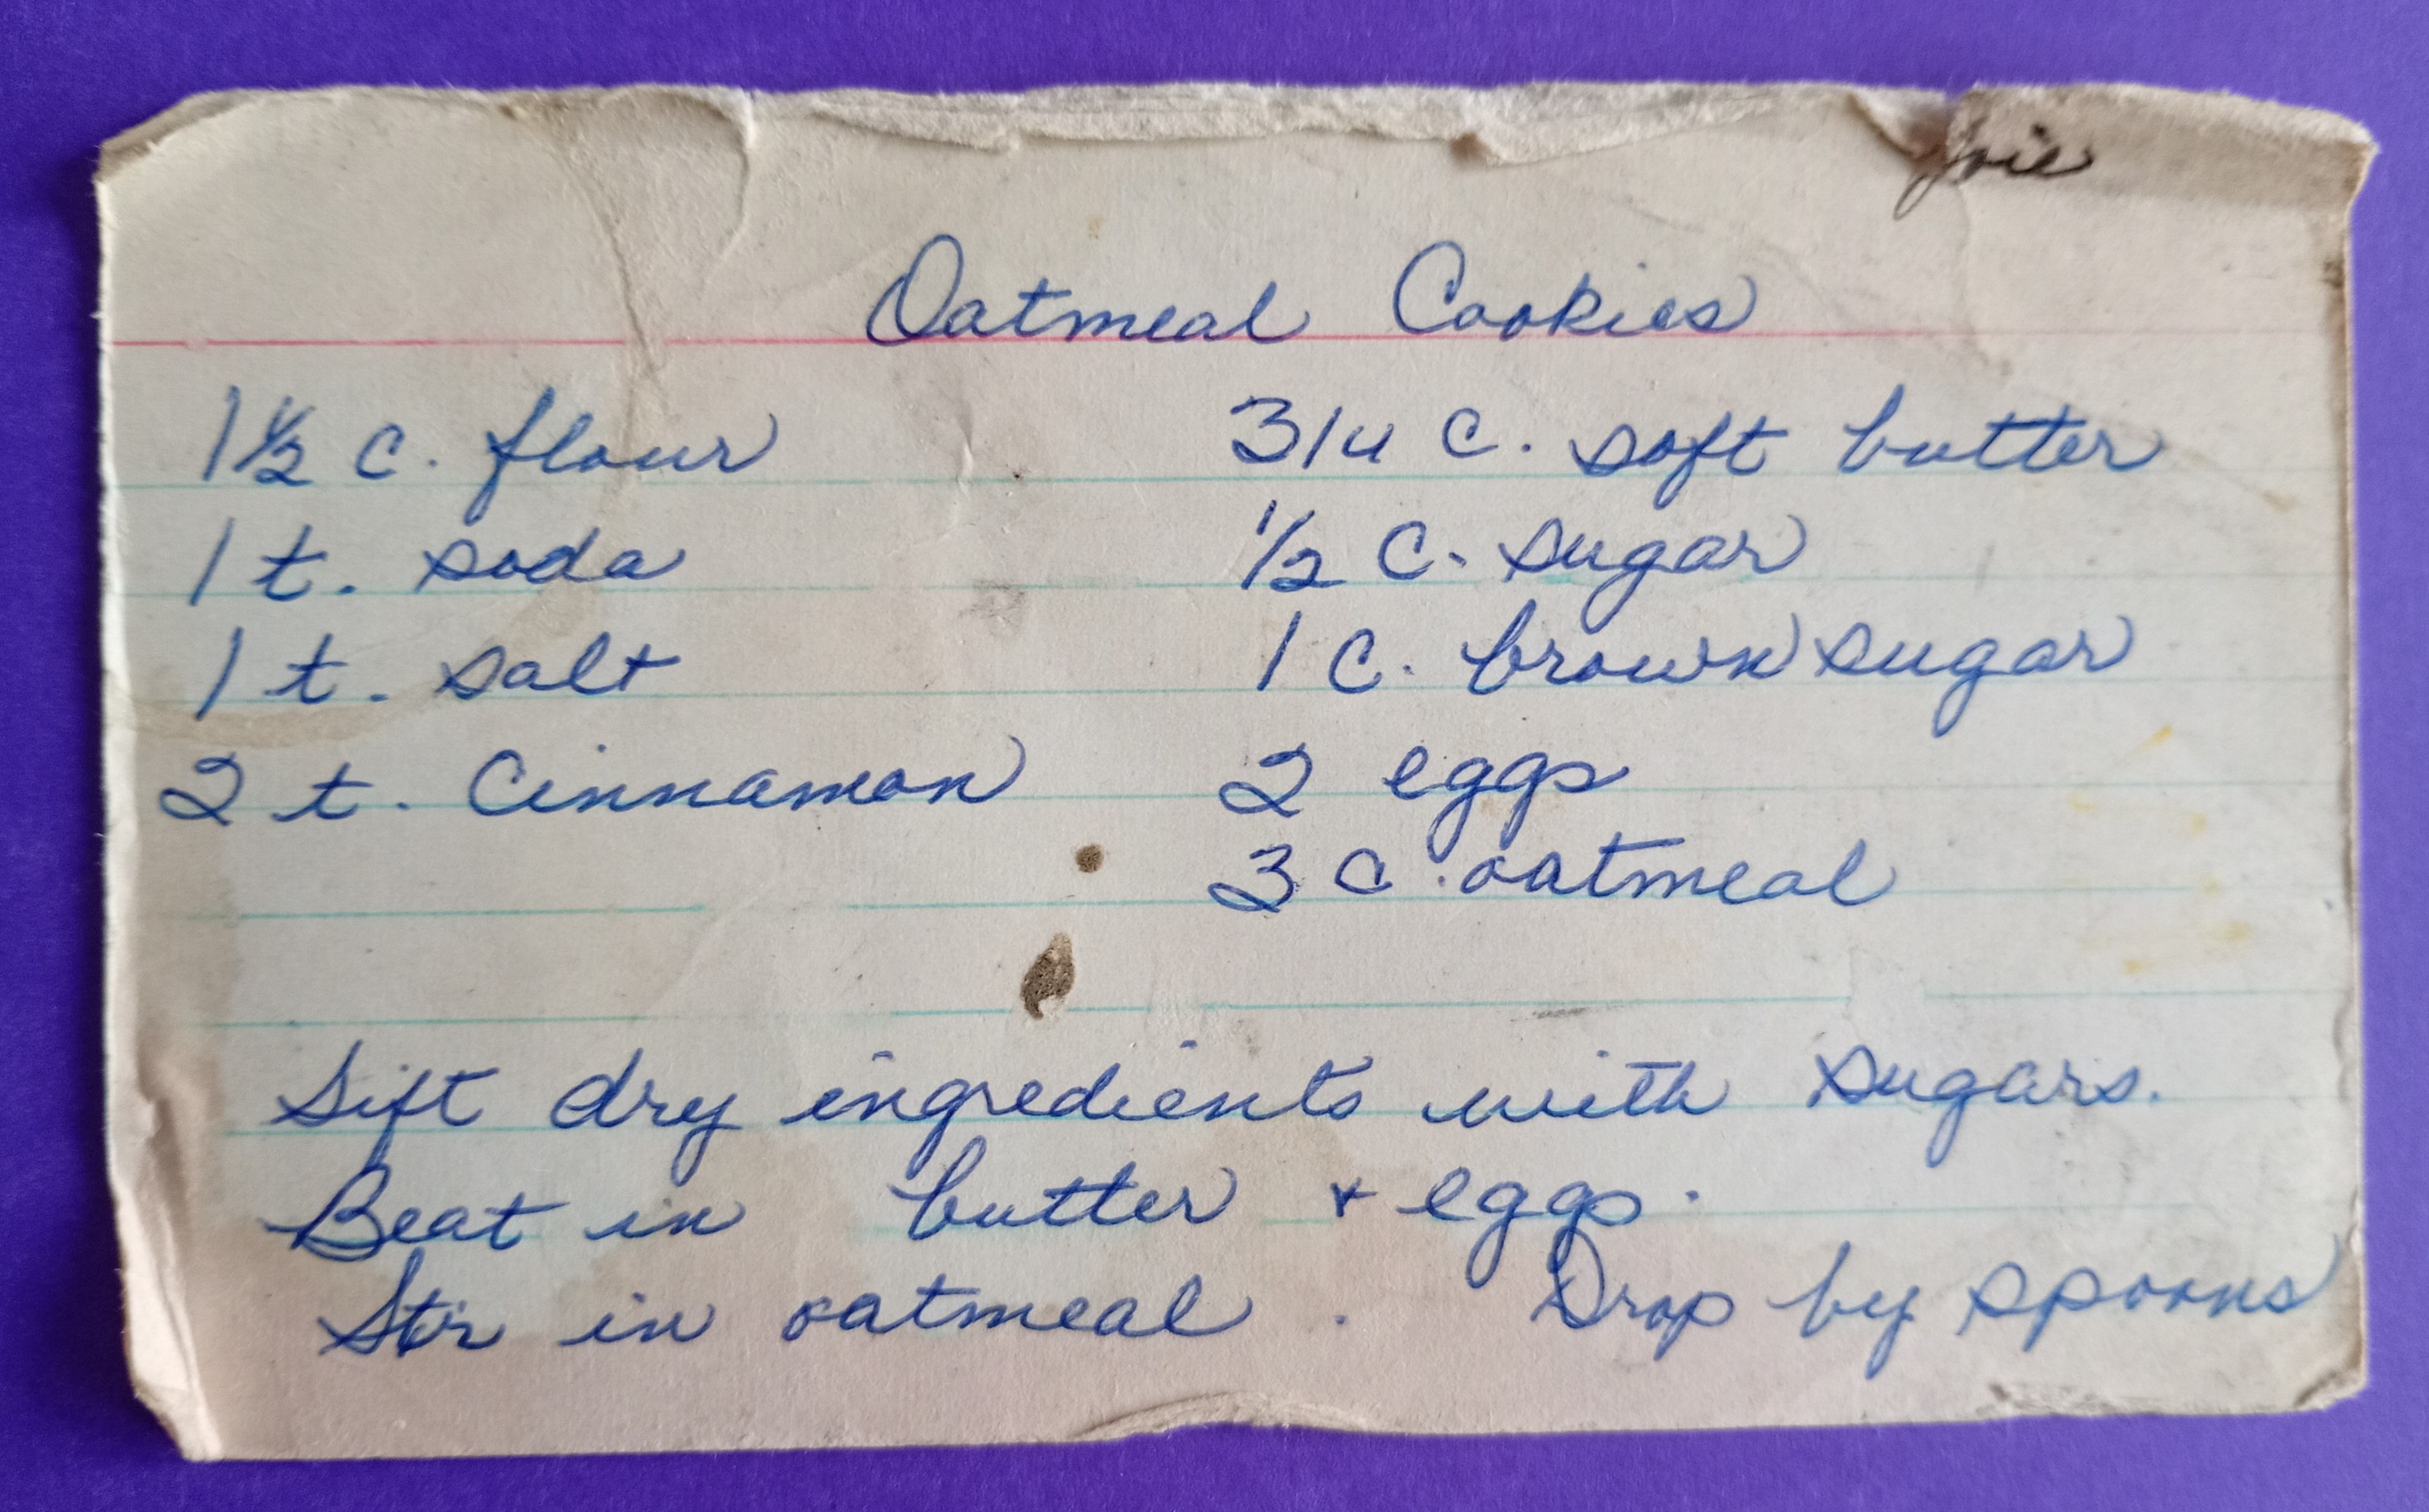 Oatmeal Cookies
1 1/2 c. flour 3/4 c. soft butter
1 t. soda 1/2 c. sugar
1 t. salt 1 c. brown sugar
2 t. cinnamon 2 eggs
3 c. oatmeal
Sift dry ingredients with sugars.
Beat in butter + eggs.
Stir in oatmeal. Drop by spoons